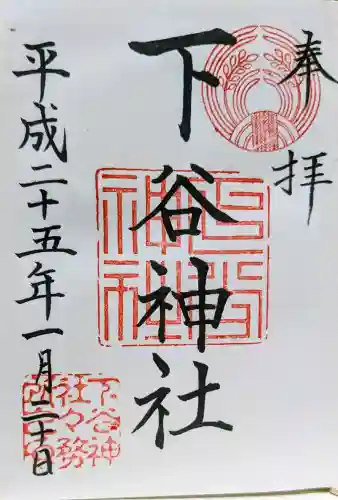 奉拝
下谷神社
平成二十五年一月二十日
下谷神社